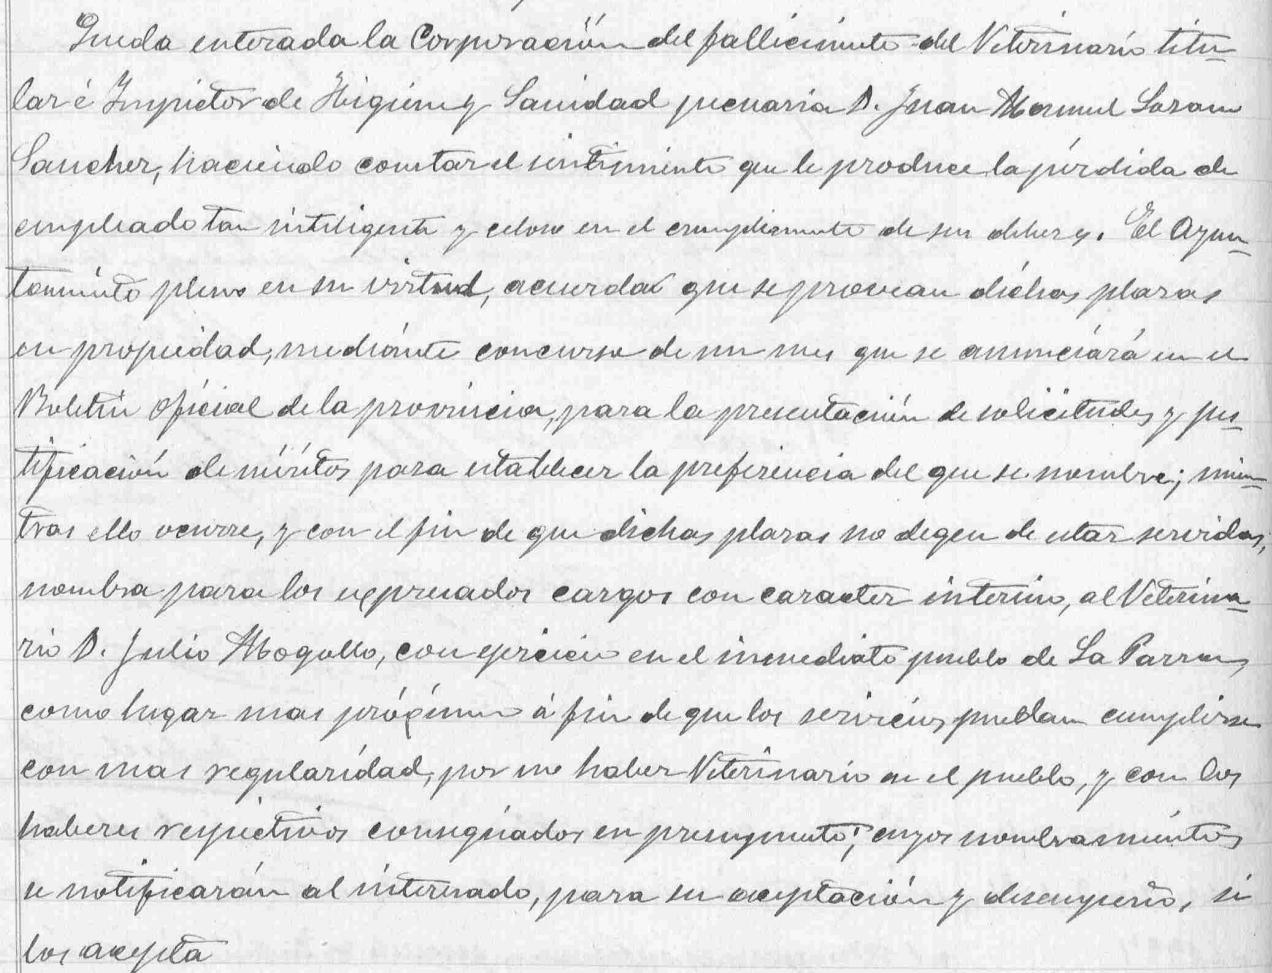 Queda enterada la Corporación del fallecimiento del Veterinario titu-
lar é Inspector de Higiene y Sanidad pecuaria D. Juan Manuel Lozano
Sanchez, haciendo constar el sentimiento que le produce la pérdida de
empleado tan inteligente y celoso en el cumplimiento de sus deberes. El Ayun-
tamiento pleno en su virtud, acuerda que se provean dichas plazas
en propiedad, mediante concurso de un mes que se anunciará en el
Boletin oficial de la provincia, para la presentación de solicitudes y jus-
tificación de méritos para establecer la preferencia del que se nombre; mien-
tras ello ocurre, y con el fin de que dichas plazas no degen de estar servidas,
nombra para los expresados cargos con caracter interino, al Veterina-
rio D. Julio Mogollo, con ejercicio en el inmediato pueblo de La Parra,
como lugar mas prógimo á fin de que los servicios puedan cumplirse
con mas regularidad, por no haber Veterinario en el pueblo, y con los
haberes respectivos consignados en presupuesto; cuyos nombramientos
se notificarán al interesado, para su aceptación y desempeño, si
los acepta